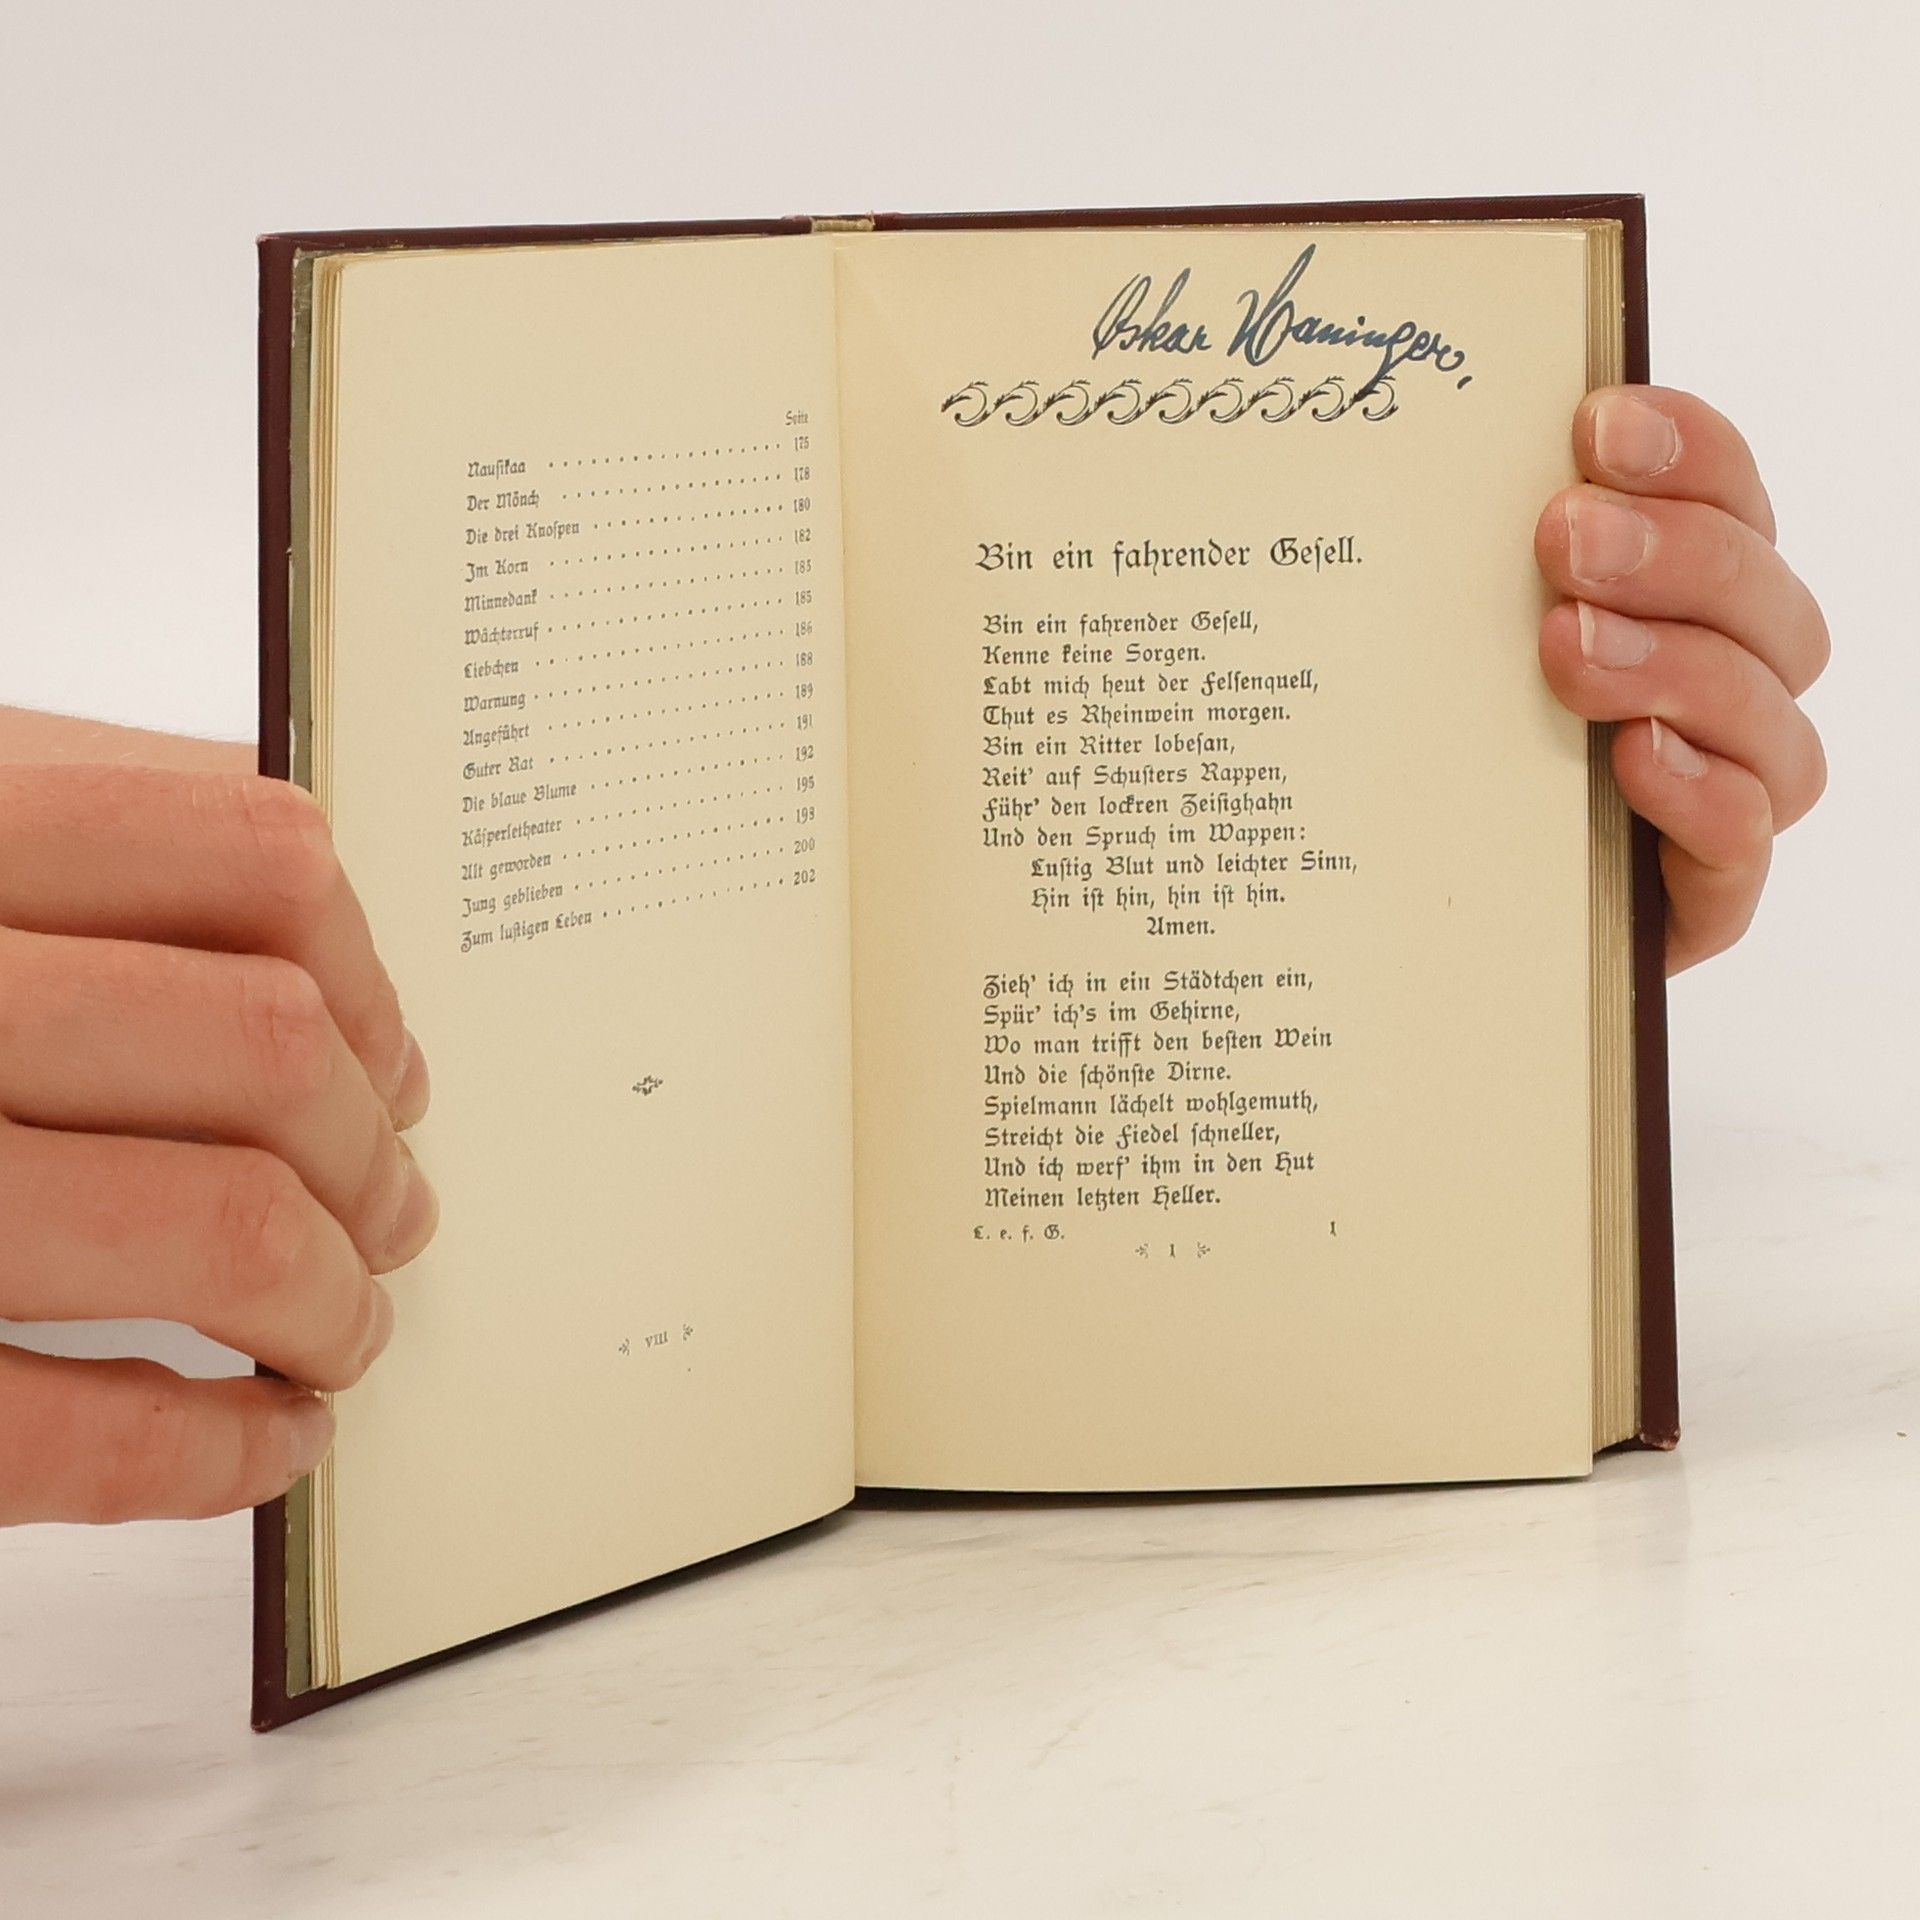 Seite
Nausikaa 175
Der Mönch 178
Die drei Knospen 180
Im Korn 182
Minnedank 183
Wächterruf 185
Liebchen 186
Warnung 188
Angeführt 189
Guter Rat 191
Die blaue Blume 192
Käsperletheater 195
Alt geworden 198
Jung geblieben 200
Zum lustigen Leben 202
VIII
Oskar
Bin ein fahrender Gesell.
Bin ein fahrender Gesell,
Kenne keine Sorgen.
Labt mich heut der Felsenquell,
Thut es Rheinwein morgen.
Bin ein Ritter lobesan,
Reit' auf Schusters Rappen,
Führ' den lockren Zeisighahn
Und den Spruch im Wappen:
Lustig Blut und leichter Sinn,
Hin ist hin, hin ist hin.
Amen.
Zieh' ich in ein Städtchen ein,
Spür' ich's im Gehirne,
Wo man trifft den besten Wein
Und die schönste Dirne.
Spielmann lächelt wohlgemuth,
Streicht die Fiedel schneller,
Und ich werf' ihm in den Hut
Meinen letzten Heller.
L. e. f. G. 1
1